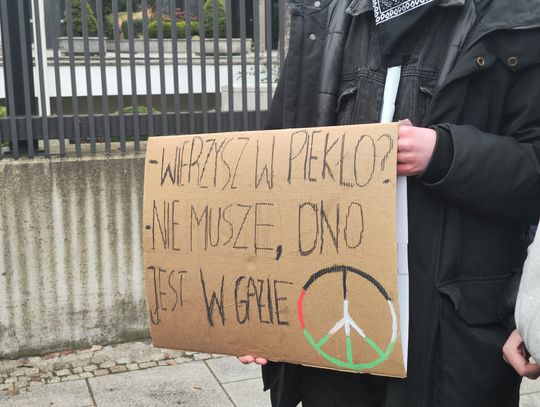 -WIERZYSZ W PIEKŁO?
-NIE MUSZĘ, ONO
JEST W GAZIE